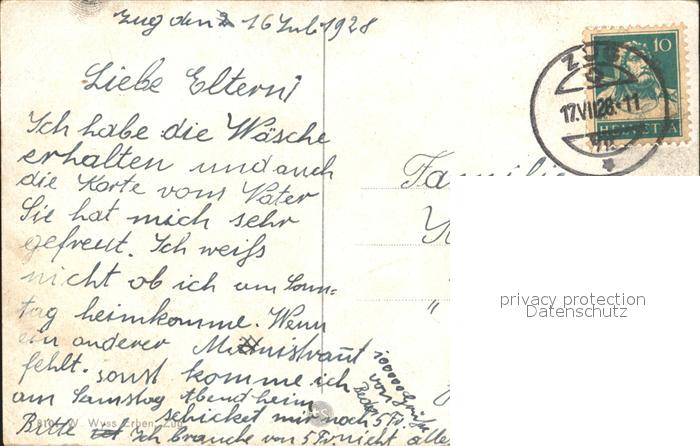 Zug den 16 Jul 1928
Liebe Eltern!
Ich habe die Wäsche
erhalten und auch
die Karte vom Vater
Sie hat mich sehr
gefreut. Ich weiss
nicht ob ich am Sonn=
tag heimkomme. Wenn
ein anderer
fehlt. sonst komme ich
am Samstag Abend heim
Bitte schicket mir noch 5 Fr.
Ich brauche von 5 Fr nicht alle
1000000 Grüsse
von
Familie
"
ZUG
17.VII.28.-11
10
HELVETIA
W. Wyss Erben, Zug
privacy protection
Datenschutz